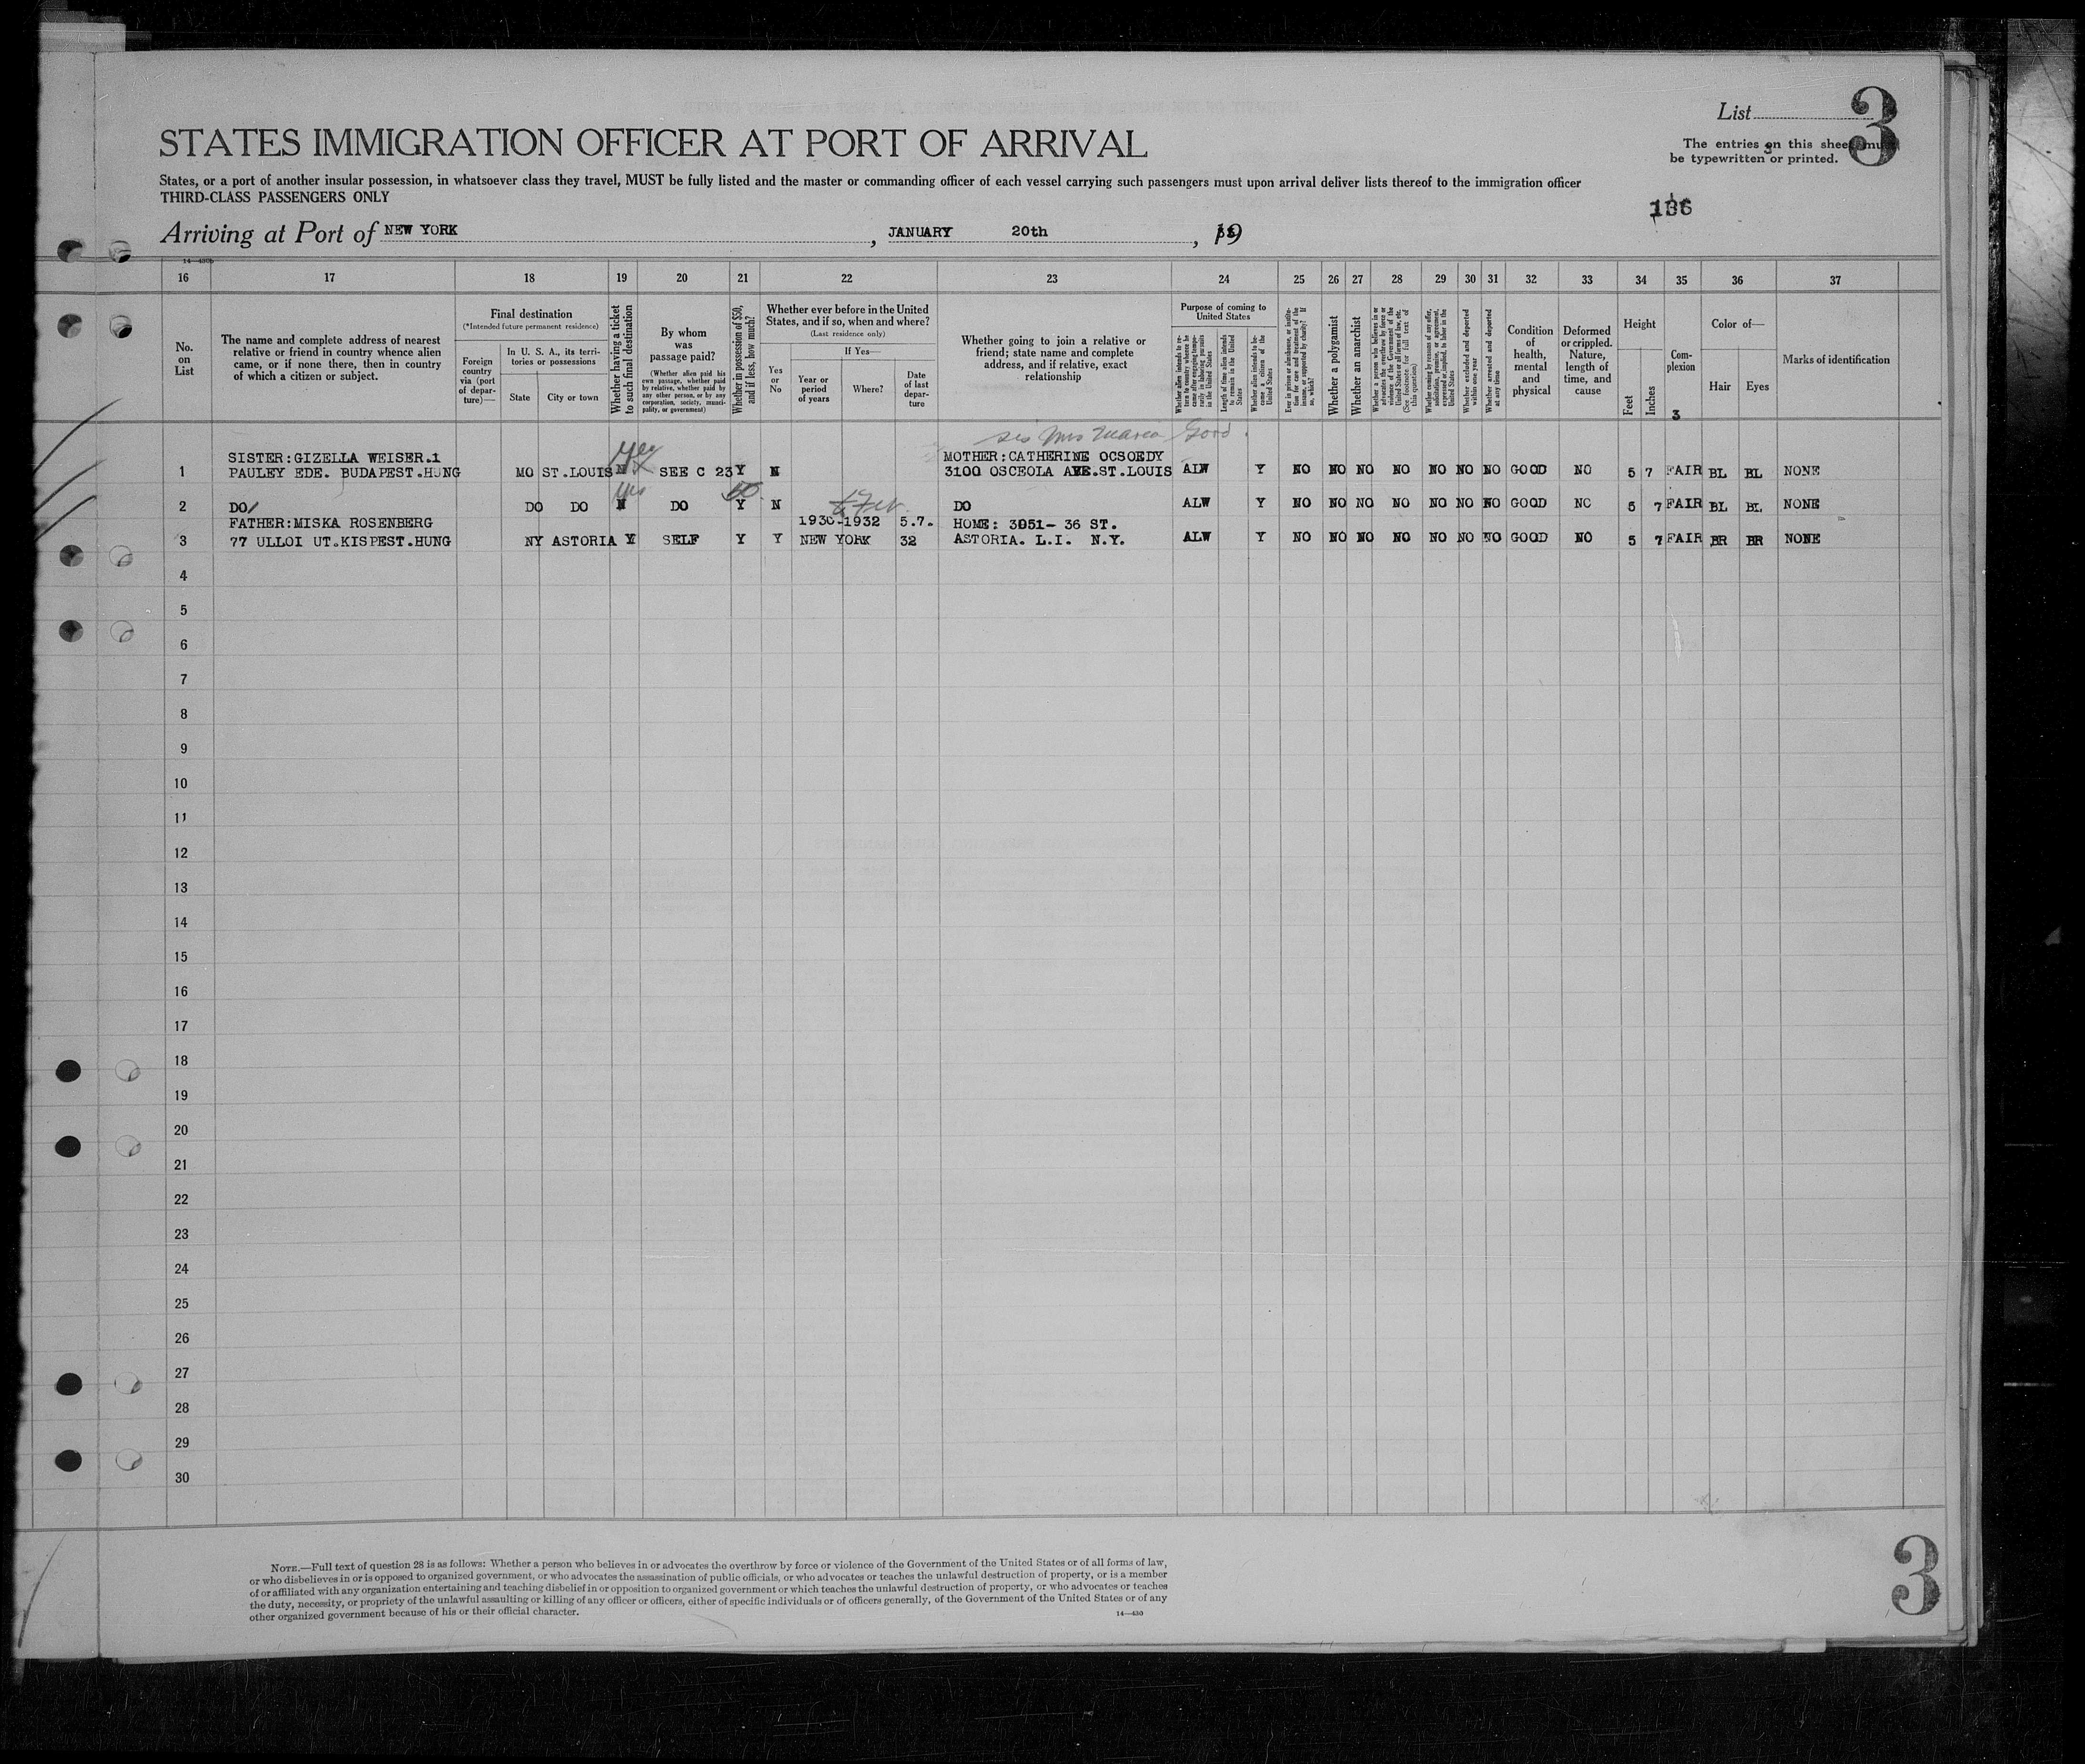 List 3
STATES IMMIGRATION OFFICER AT PORT OF ARRIVAL
The entries on this sheet must
be typewritten or printed.
States, or a port of another insular possession, in whatsoever class they travel, MUST be fully listed and the master or commanding officer of each vessel carrying such passengers must upon arrival deliver lists thereof to the immigration officer
THIRD-CLASS PASSENGERS ONLY
Arriving at Port of NEW YORK, JANUARY 20th, 19
16 17 18 19 20 21 22 23 24 25 26 27 28 29 30 31 32 33 34 35 36 37
No. on List
The name and complete address of nearest relative or friend in country whence alien came, or if none there, then in country of which a citizen or subject.
Final destination
(*Intended future permanent residence)
Foreign country via (port of departure)—
In U. S. A., its territories or possessions
State
City or town
Whether having a ticket to such final destination
By whom was passage paid?
(Whether alien paid his own passage, whether paid by relative, whether paid by any other person, or by any corporation, society, municipality, or government)
Whether in possession of $50, and if less, how much?
Whether ever before in the United States, and if so, when and where?
(Last residence only)
Yes or No
If Yes—
Year or period of years
Where?
Date of last departure
Whether going to join a relative or friend; state name and complete address, and if relative, exact relationship
Purpose of coming to United States
Whether alien intends to return to country whence he came after engaging temporarily in laboring pursuits in the United States
Length of time alien intends to remain in the United States
Whether alien intends to become a citizen of the United States
Ever in prison or almshouse, or institution for care and treatment of the insane, or supported by charity? If so, which?
Whether a polygamist
Whether an anarchist
Whether a person who believes in or advocates the overthrow by force or violence of the Government of the United States or all forms of law, etc. (See footnote for full text of this question)
Whether coming by reasons of any offer, solicitation, promise, or agreement, expressed or implied, to labor in the United States
Whether excluded and deported within one year
Whether arrested and deported at any time
Condition of health, mental and physical
Deformed or crippled. Nature, length of time, and cause
Height
Feet
Inches
Complexion
Color of—
Hair
Eyes
Marks of identification
3
sis Mrs Maria Good
SISTER:GIZELLA WEISER.1 MOTHER:CATHERINE OCSOEDY
1 PAULEY EDE. BUDAPEST.HUNG MO ST.LOUIS N Yes SEE C 23 Y N 3100 OSCEOLA AVE.ST.LOUIS ALW Y NO NO NO NO NO NO NO GOOD NO 5 7 FAIR BL BL NONE
2 DO/ DO DO N yes DO Y 50 N DO ALW Y NO NO NO NO NO NO NO GOOD NO 5 7 FAIR BL BL NONE
FATHER:MISKA ROSENBERG 1930-1932 5.7. HOME: 3051- 36 ST.
3 77 ULLOI UT.KISPEST.HUNG NY ASTORIA Y SELF Y Y NEW YORK 32 ASTORIA. L.I. N.Y. ALW Y NO NO NO NO NO NO NO GOOD NO 5 7 FAIR BR BR NONE
4
5
6
7
8
9
10
11
12
13
14
15
16
17
18
19
20
21
22
23
24
25
26
27
28
29
30
NOTE.—Full text of question 28 is as follows: Whether a person who believes in or advocates the overthrow by force or violence of the Government of the United States or of all forms of law,
or who disbelieves in or is opposed to organized government, or who advocates the assassination of public officials, or who advocates or teaches the unlawful destruction of property, or is a member
of or affiliated with any organization entertaining and teaching disbelief in or opposition to organized government or which teaches the unlawful destruction of property, or who advocates or teaches
the duty, necessity, or propriety of the unlawful assaulting or killing of any officer or officers, either of specific individuals or of officers generally, of the Government of the United States or of any
other organized government because of his or their official character.
14—430
3